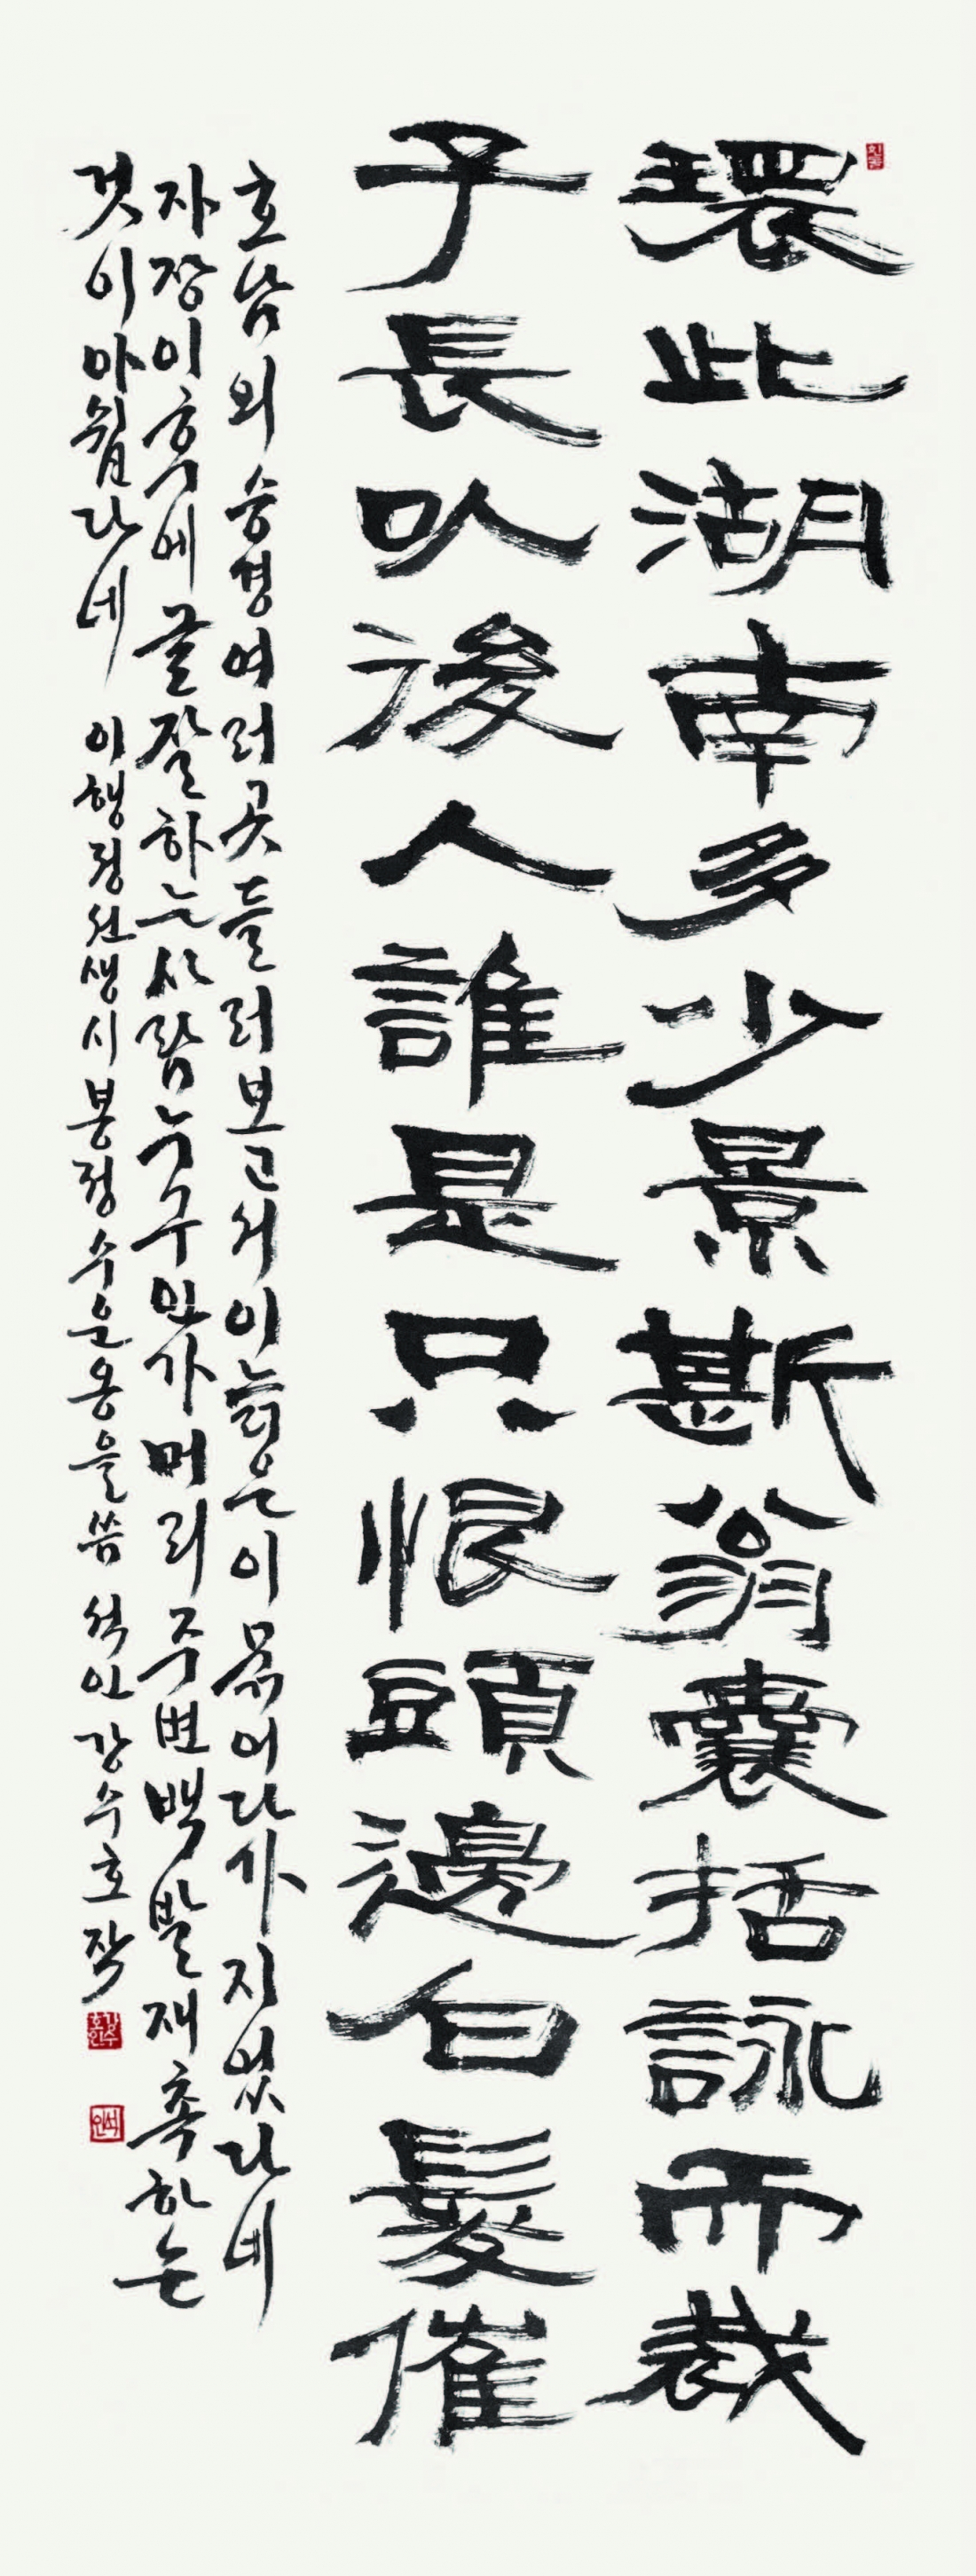 環此湖南多少景斯翁囊括詠而裁
子長以後人誰是只恨頭邊白髮催
호남의 승경 여러 곳 들러보고서 이 늙은이 묶어다가 지었다네
자장 이후에 글 잘하는 사람 누구인가 머리 주변 백발 재촉하는
것이 아쉽다네 이행정선생시 봉정수운옹을 씀 석인 강수호 작
석인